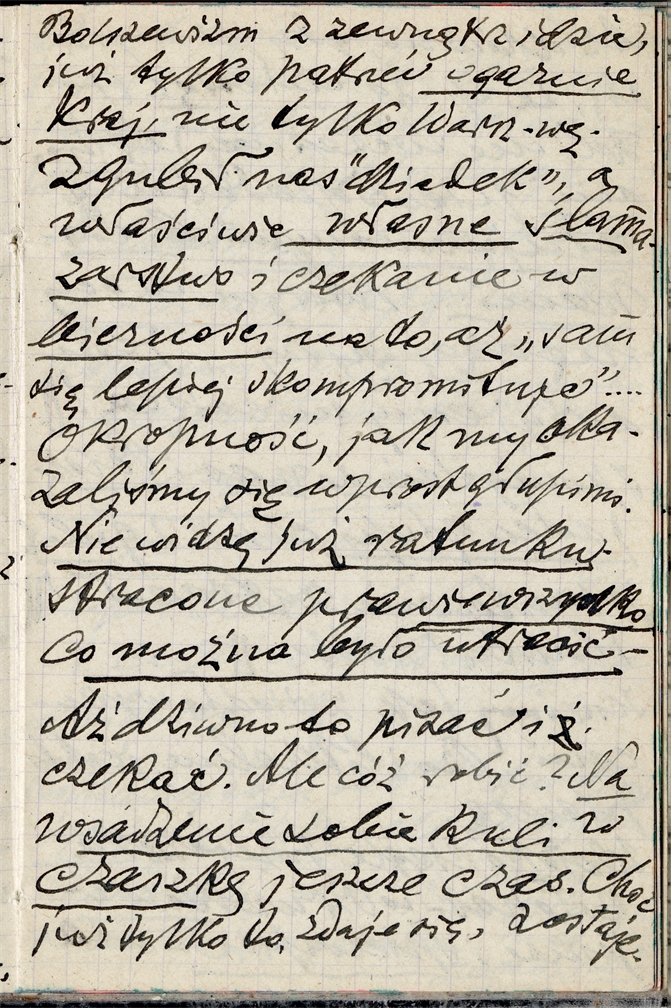 Bolszewizm z zewnątrz idzie,
już tylko patrzeć ogarnie
Kraj, nie tylko Warsz-wę.
Zgubił nas "dziadek", a
właściwie własne ślama-
zarstwo i czekanie w
bierności na to, aż „sam
się lepiej skompromituje"....
Okropność, jak my oka-
zaliśmy się wprost głupimi.
Nie widzę już ratunku.
stracone prawie wszystko
co można było utracić -
Aż dziwno to pisać i
czekać. Ale cóż robić? Na
wsadzenie sobie kuli w
czaszkę jeszcze czas. Choć
już tylko to, zdaje się, zostaje.